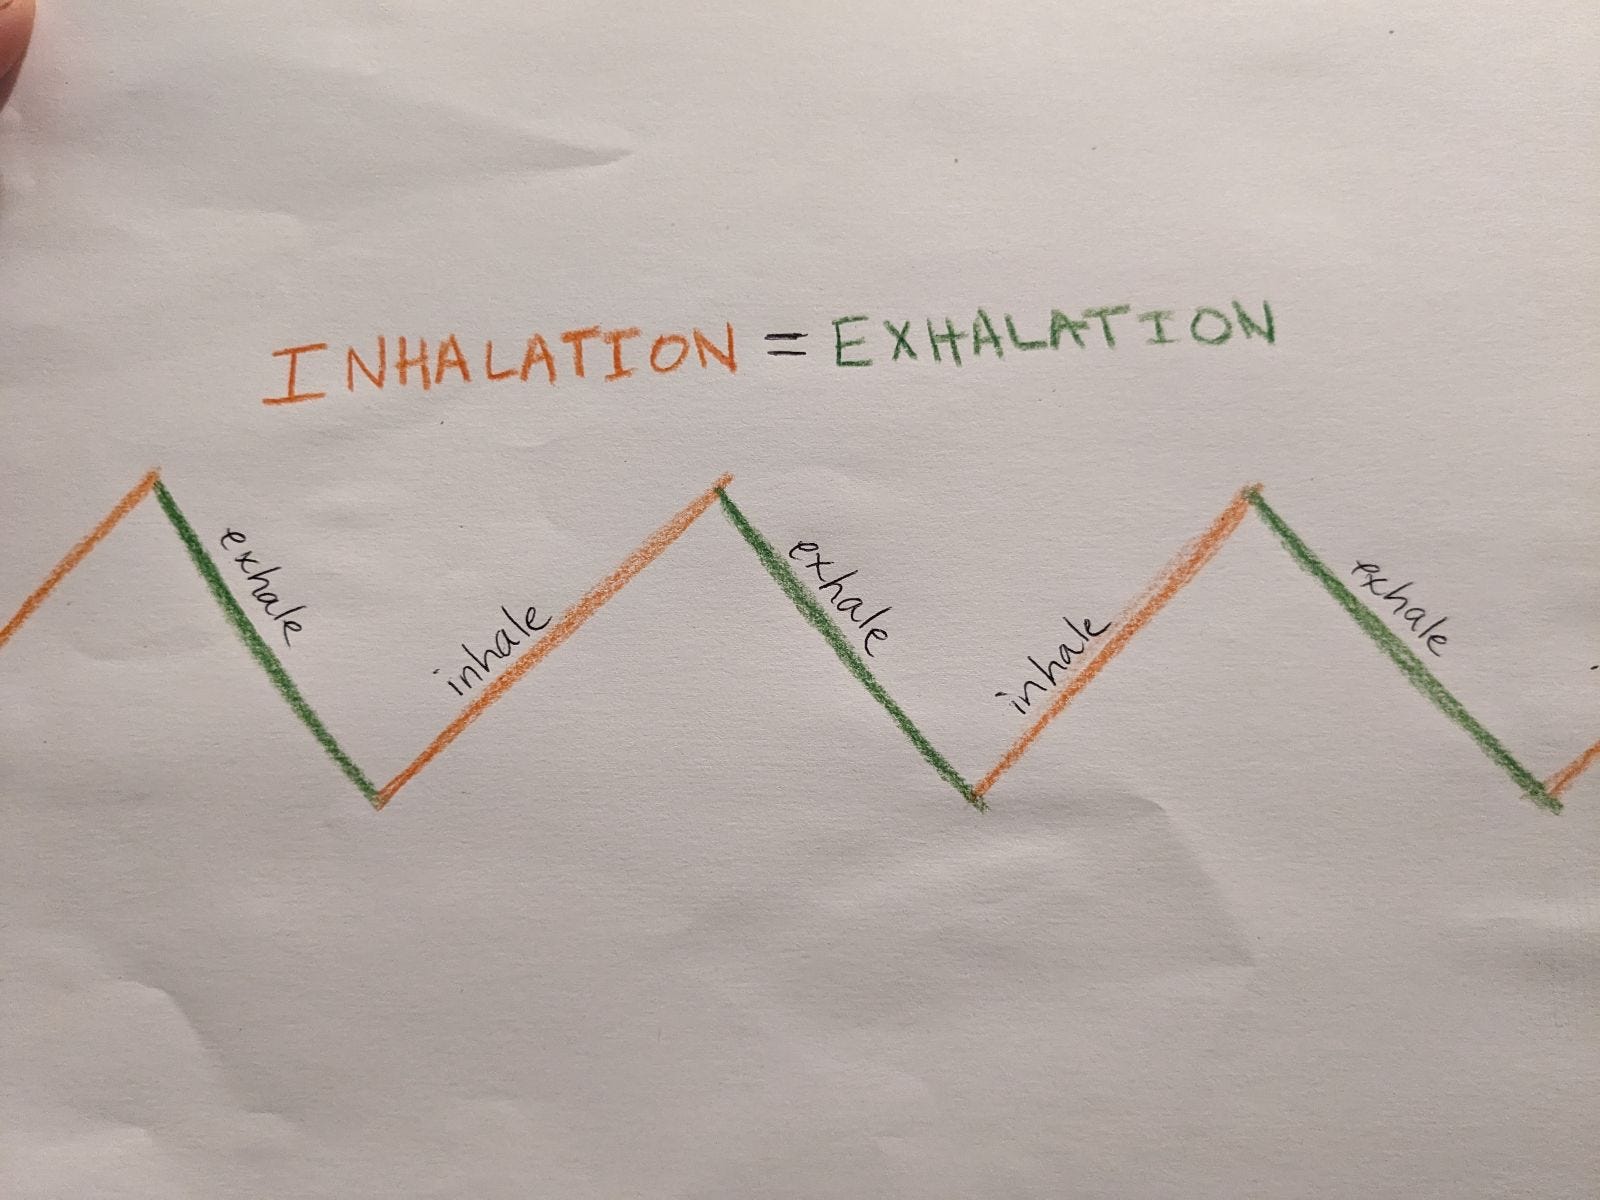 INHALATION = EXHALATION
exhale
inhale
exhale
inhale
exhale